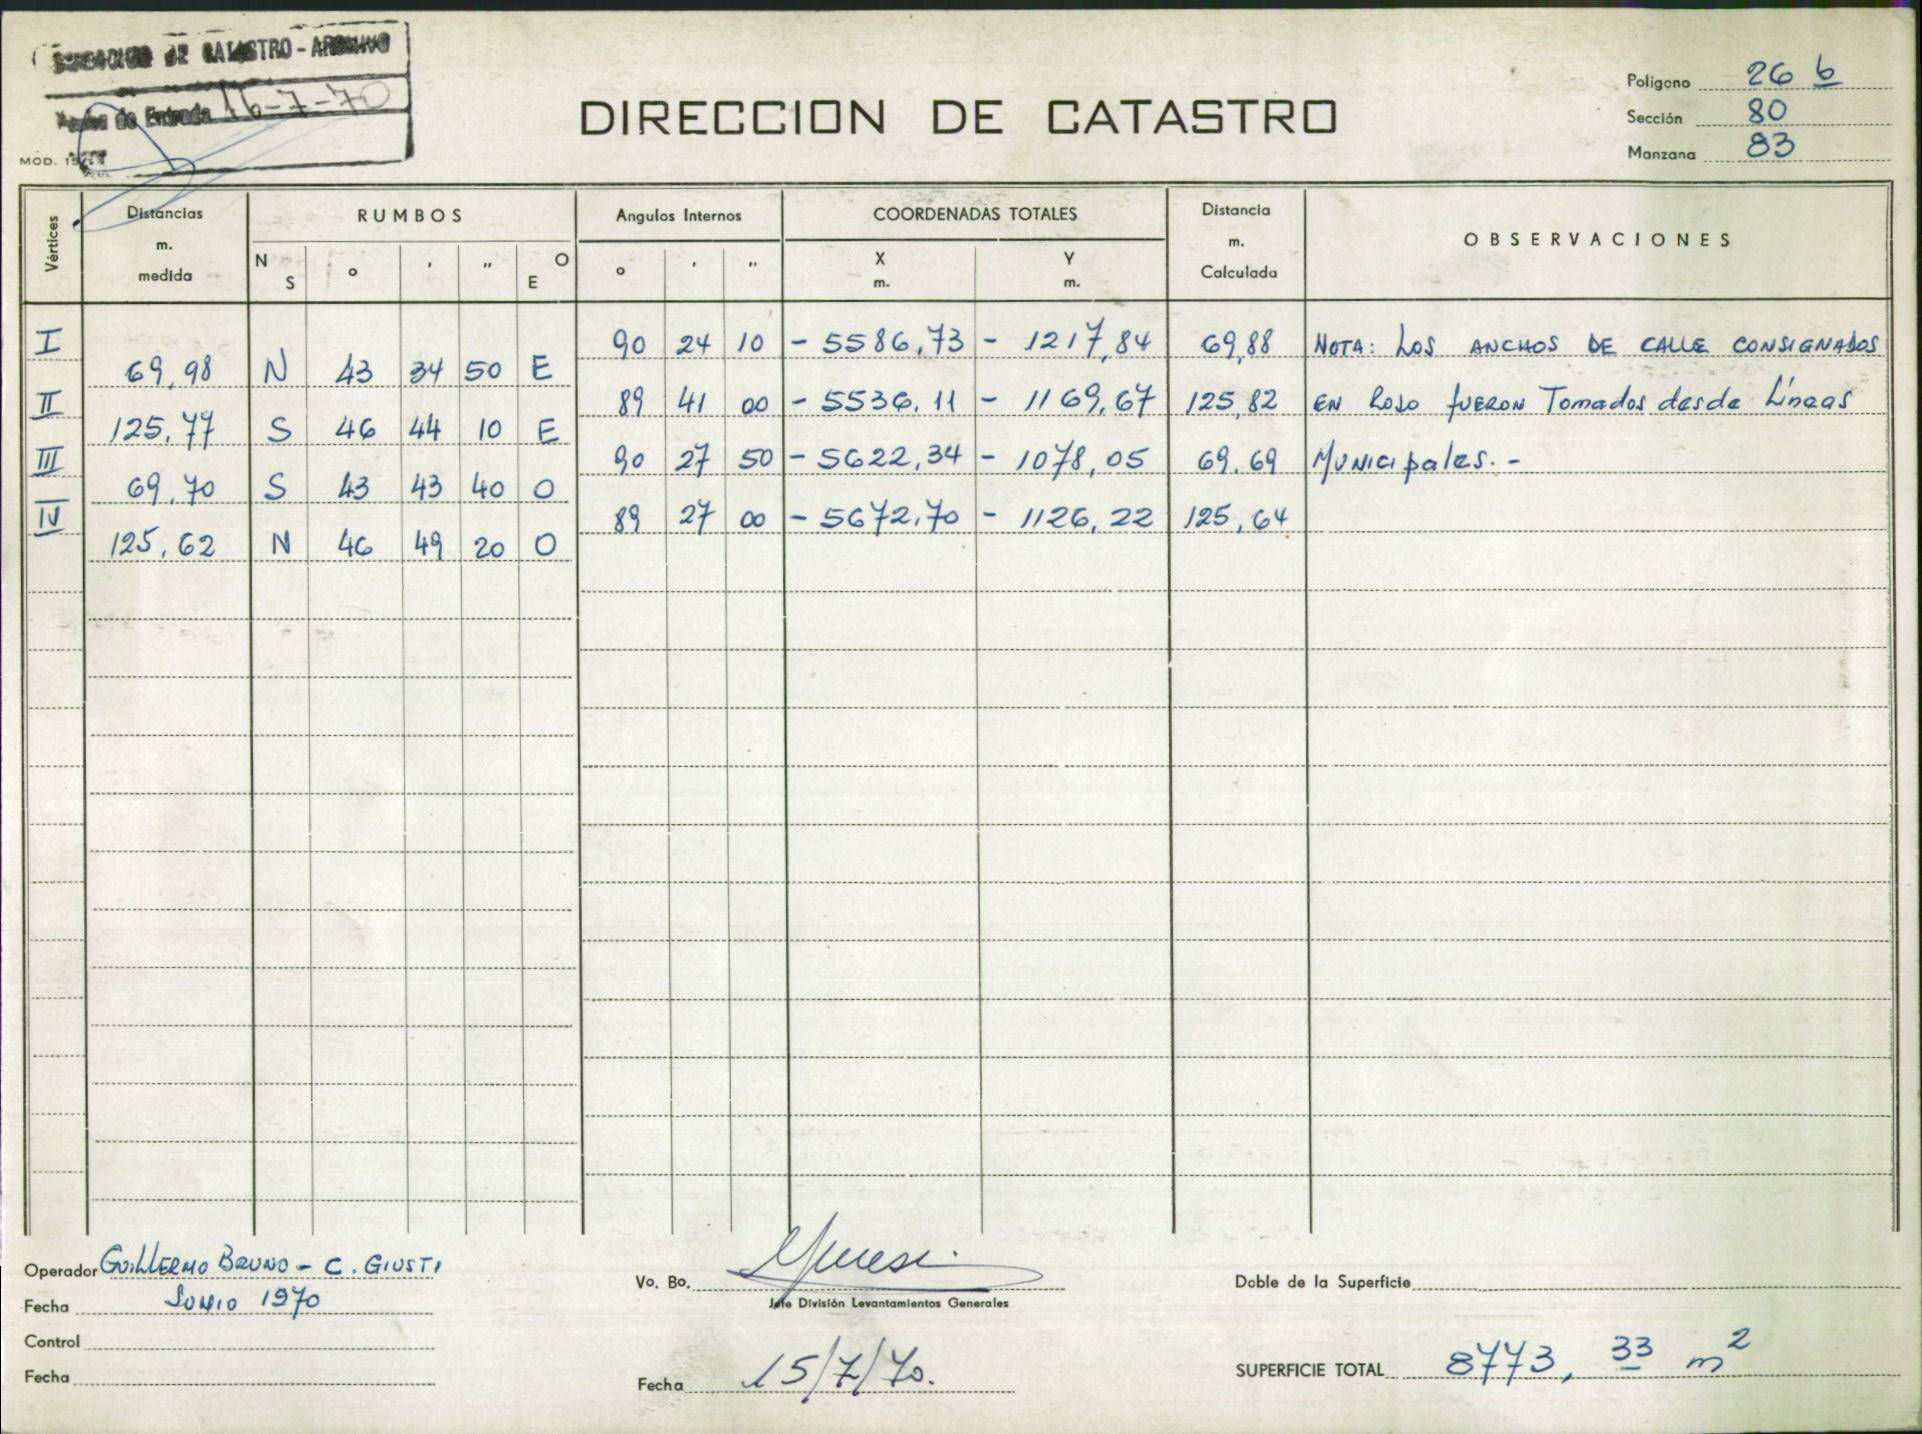 DE CATASTRO - ARCHIVO
de Entrada 16-7-70
MOD.
DIRECCION DE CATASTRO
Polígono 26 b
Sección 80
Manzana 83
Vértices Distancias m. medida RUMBOS N S ° ' " O E Angulos Internos ° ' " COORDENADAS TOTALES X m. Y m. Distancia m. Calculada OBSERVACIONES
I 90 24 10 - 5586,73 - 1217,84 69,88 NOTA: LOS ANCHOS DE CALLE CONSIGNADOS
69,98 N 43 34 50 E
II 89 41 00 - 5536,11 - 1169,67 125,82 EN ROJO FUERON Tomados desde Líneas
125,77 S 46 44 10 E
III 90 27 50 - 5622,34 - 1078,05 69.69 Municipales.-
69,70 S 43 43 40 O
IV 89 27 00 - 5672,70 - 1126,22 125,64
125,62 N 46 49 20 O
Operador GUILLERMO BRUNO - C. GIUSTI
Fecha JUNIO 1970
Control
Fecha
Vo. Bo.
Jefe División Levantamientos Generales
Fecha 15/7/70.
Doble de la Superficie
SUPERFICIE TOTAL 8773,33 m2